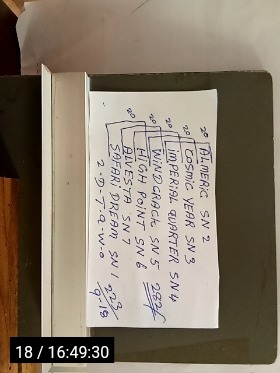 20 20 20 20 20
PALMERIC SN 2
COSMIC YEAR SN 3
IMPERIAL QUARTER SN 4
WINDCRACK SN 5 282
HIGH POINT SN 6
ALVESTA SN 7
SAFARI DREAM SN 1 223
2-D-T-Q-W-O 9:18
18 / 16:49:30